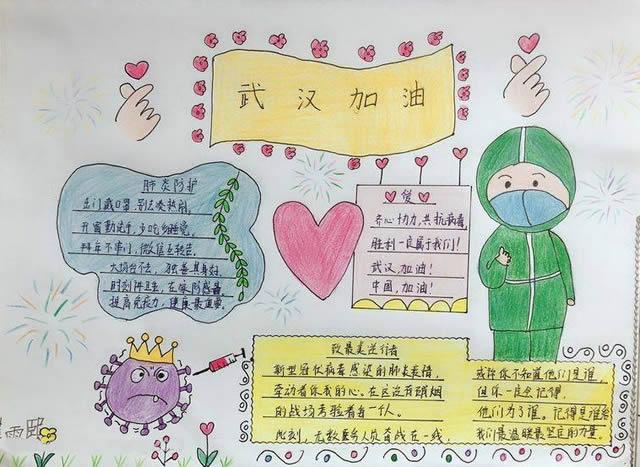 武汉加油
肺炎防护
出门戴口罩,别去凑热闹,
开窗勤洗手,多吃多睡觉,
拜年不串门,微信互转告,
大场合不去,独善其身好,
时刻讲卫生,在家防感毒
提高免疫力,健康最重要。
爱
齐心协力,共抗病毒,
胜利一定属于我们!
武汉加油!
中国,加油!
致最美逆行者
新型冠状病毒感染的肺炎疫情,
牵动着你我的心。在这没有硝烟
的战场考验着每一个人。
此刻,无数医务人员奋战在一线,
或许你不知道他们是谁,
但你一定会记得,
他们为了谁。记得是谁给
我们最温暖最坚定的力量。
雨